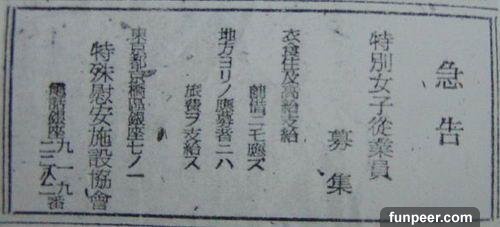 急告
特別女子従業員
募集
衣食住及高給支給
前借ニモ應ズ
地方ヨリノ應募者ニハ
旅費ヲ支給ス
東京都京橋區銀座七ノ一
特殊慰安施設協會
電話銀座九一九番
二二八二
funpeer.com